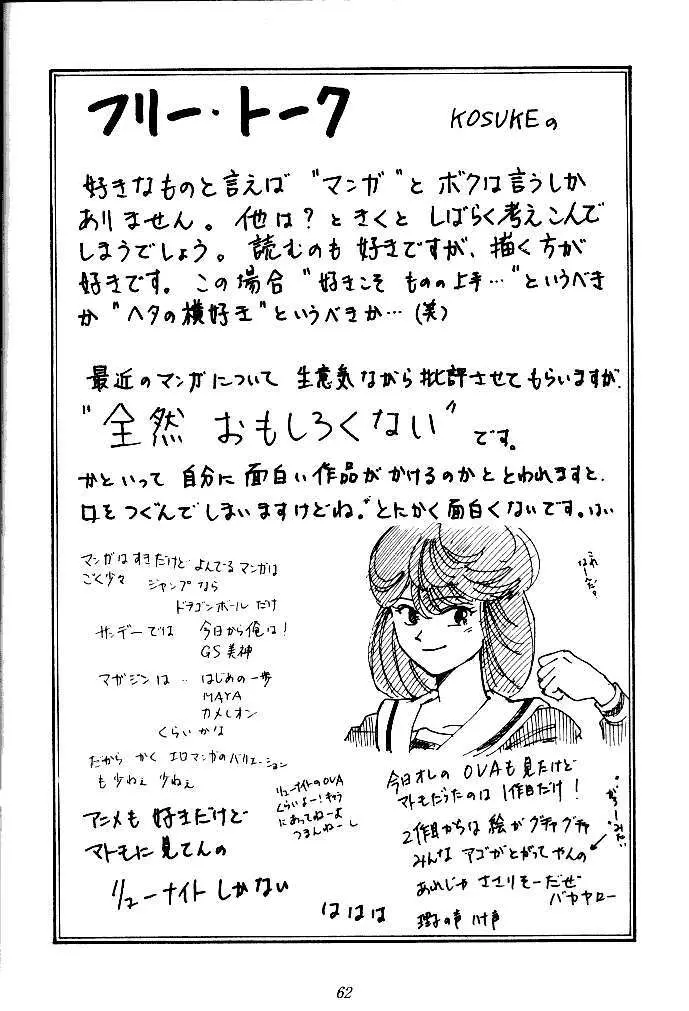 フリー・トーク
KOSUKEの
好きなものと言えば "マンガ"と ボクは言うしか
ありません。他は？ときくと しばらく考えこんで
しまうでしょう。読むのも 好きですが、描く方が
好きです。この場合 "好きこそ ものの上手…"というべき
か "ヘタの横好き"というべきか…(笑)
最近のマンガについて 生意気ながら批評させてもらいますが、
"全然 おもしろくない" です。
かといって 自分に 面白い作品がかけるのかと とわれますと、
口をつぐんでしまいますけどね。とにかく面白くないです。はい
マンガはすきだけど よんでるマンガは
ごく少々 ジャンプなら
ドラゴンボールだけ
サンデーでは 今日から俺は！
GS美神
マガジンは … はじめの一歩
MAYA
カメレオン
くらいかな
だから かく エロマンガのバリエーション
も 少ねぇ 少ねぇ
これ
アニメも 好きだけど
マトモに 見てんの
リューナイト しかない
リューナイトのOVA
くらいよー！キャラ
にあってねーよ
つまんねーし
ははは
今日オレの OVAも見たけど
マトモだったのは 1作目だけ！
2作目からは 絵がグチャグチャ
みんな アゴがとがってやんの
あれじゃ ささりそーだぜ
バカヤロー
理子の声